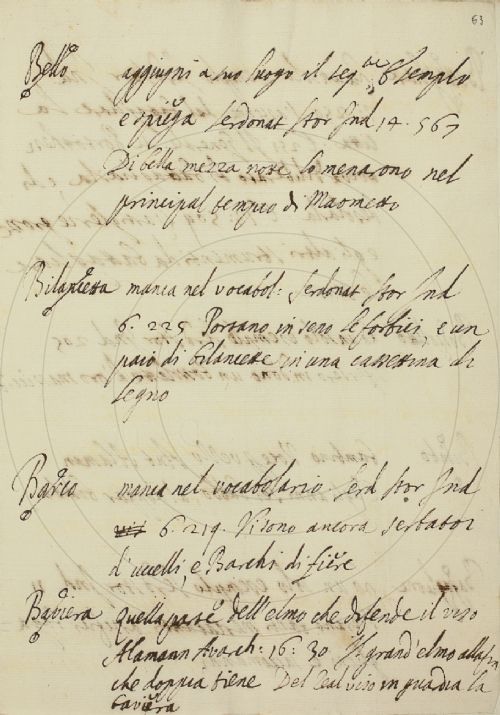 63
Bello aggiugni a suo luogo il seg.te Esemplo
e spiega Serdonat Stor Ind 14. 567
Di bella mezza notte lo menarono nel
principal tempio di Maometto
Bilancetta manca nel vocabol: Serdonat Stor Ind
6. 225 Portano in seno le forbici, e un
paio di bilancette in una cassettina di
legno
Barco manca nel vocabolario Serd Stor Ind
6. 219. Visono ancora serbatoi
d'uccelli, e Barchi di fiere
Baviera quella parte dell'elmo che difende il viso
Alamann Avarch: 16: 30 Il grand'elmo
che doppia tiene Del Real viso in guardia la
baviera